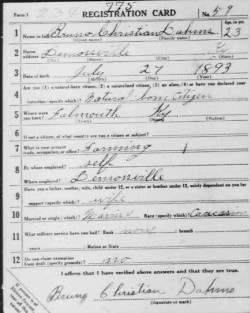 Form 1 775 REGISTRATION CARD No. 59
1 Name in full Bruno Christian Dahms Age, in yrs. 23
(Given name) (Family name)
2 Home address Demossville Ky
3 Date of birth July 24 1893
(Month) (Day) (Year)
4 Are you (1) a natural-born citizen, (2) a naturalized citizen, (3) an alien, (4) or have you declared your intention (specify which)? Natural born Citizen
5 Where were you born? Falmouth Ky
6 If not a citizen, of what country are you a citizen or subject?
7 What is your present trade, occupation, or office? Farming
8 By whom employed? self
Where employed? Demossville
9 Have you a father, mother, wife, child under 12, or a sister or brother under 12, solely dependent on you for support (specify which)? wife
10 Married or single (which)? Married Race (specify which)? Caucasian
11 What military service have you had? Rank none branch
years Nation or State
12 Do you claim exemption from draft (specify grounds)? no
I affirm that I have verified above answers and that they are true.
Bruno Christian Dahms
(Signature or mark)